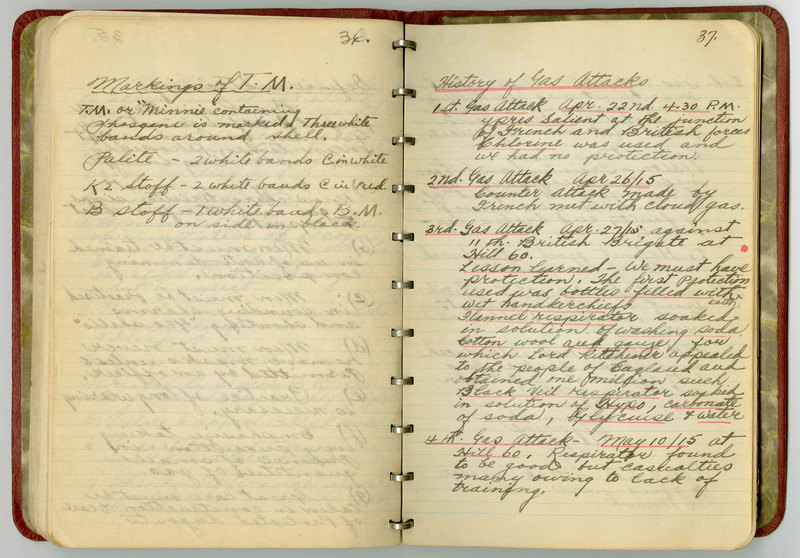 36.
Markings of T.M.
T.M. or "Minnie containing
Phosgene is marked three white
bands around shell.
Palite - 2 white bands C in white
K2 Stoff - 2 white bands C in red.
B Stoff - 1 white band - B.M.
on side in black
37.
History of Gas Attacks
1st. Gas Attack Apr. 22nd 4.30 P.M.
ypres Salient at the junction
of French and British forces
Chlorine was used and
we had no protection.
2nd. Gas Attack Apr 26/15
Counter attack made by
French met with cloud gas.
3rd. Gas Attack Apr. 27/15 against
11th. British Brigate at
Hill 60.
Lesson learned - We must have
protection. The first Protection
used was bottles filled with
water
wet handkerchiefs
Flannel respirator soaked
in solution of washing soda
Cotton wool and gauze, for
which Lord Kitchener appealed
to the people of England and
obtained one million such
Black Veil respirator soaked
in solution of Hypo, carbonate
of soda, & water
4th. Gas Attack - May 10/15 at
Hill 60. Respirator found
to be good but casualties
many owing to lack of
training.